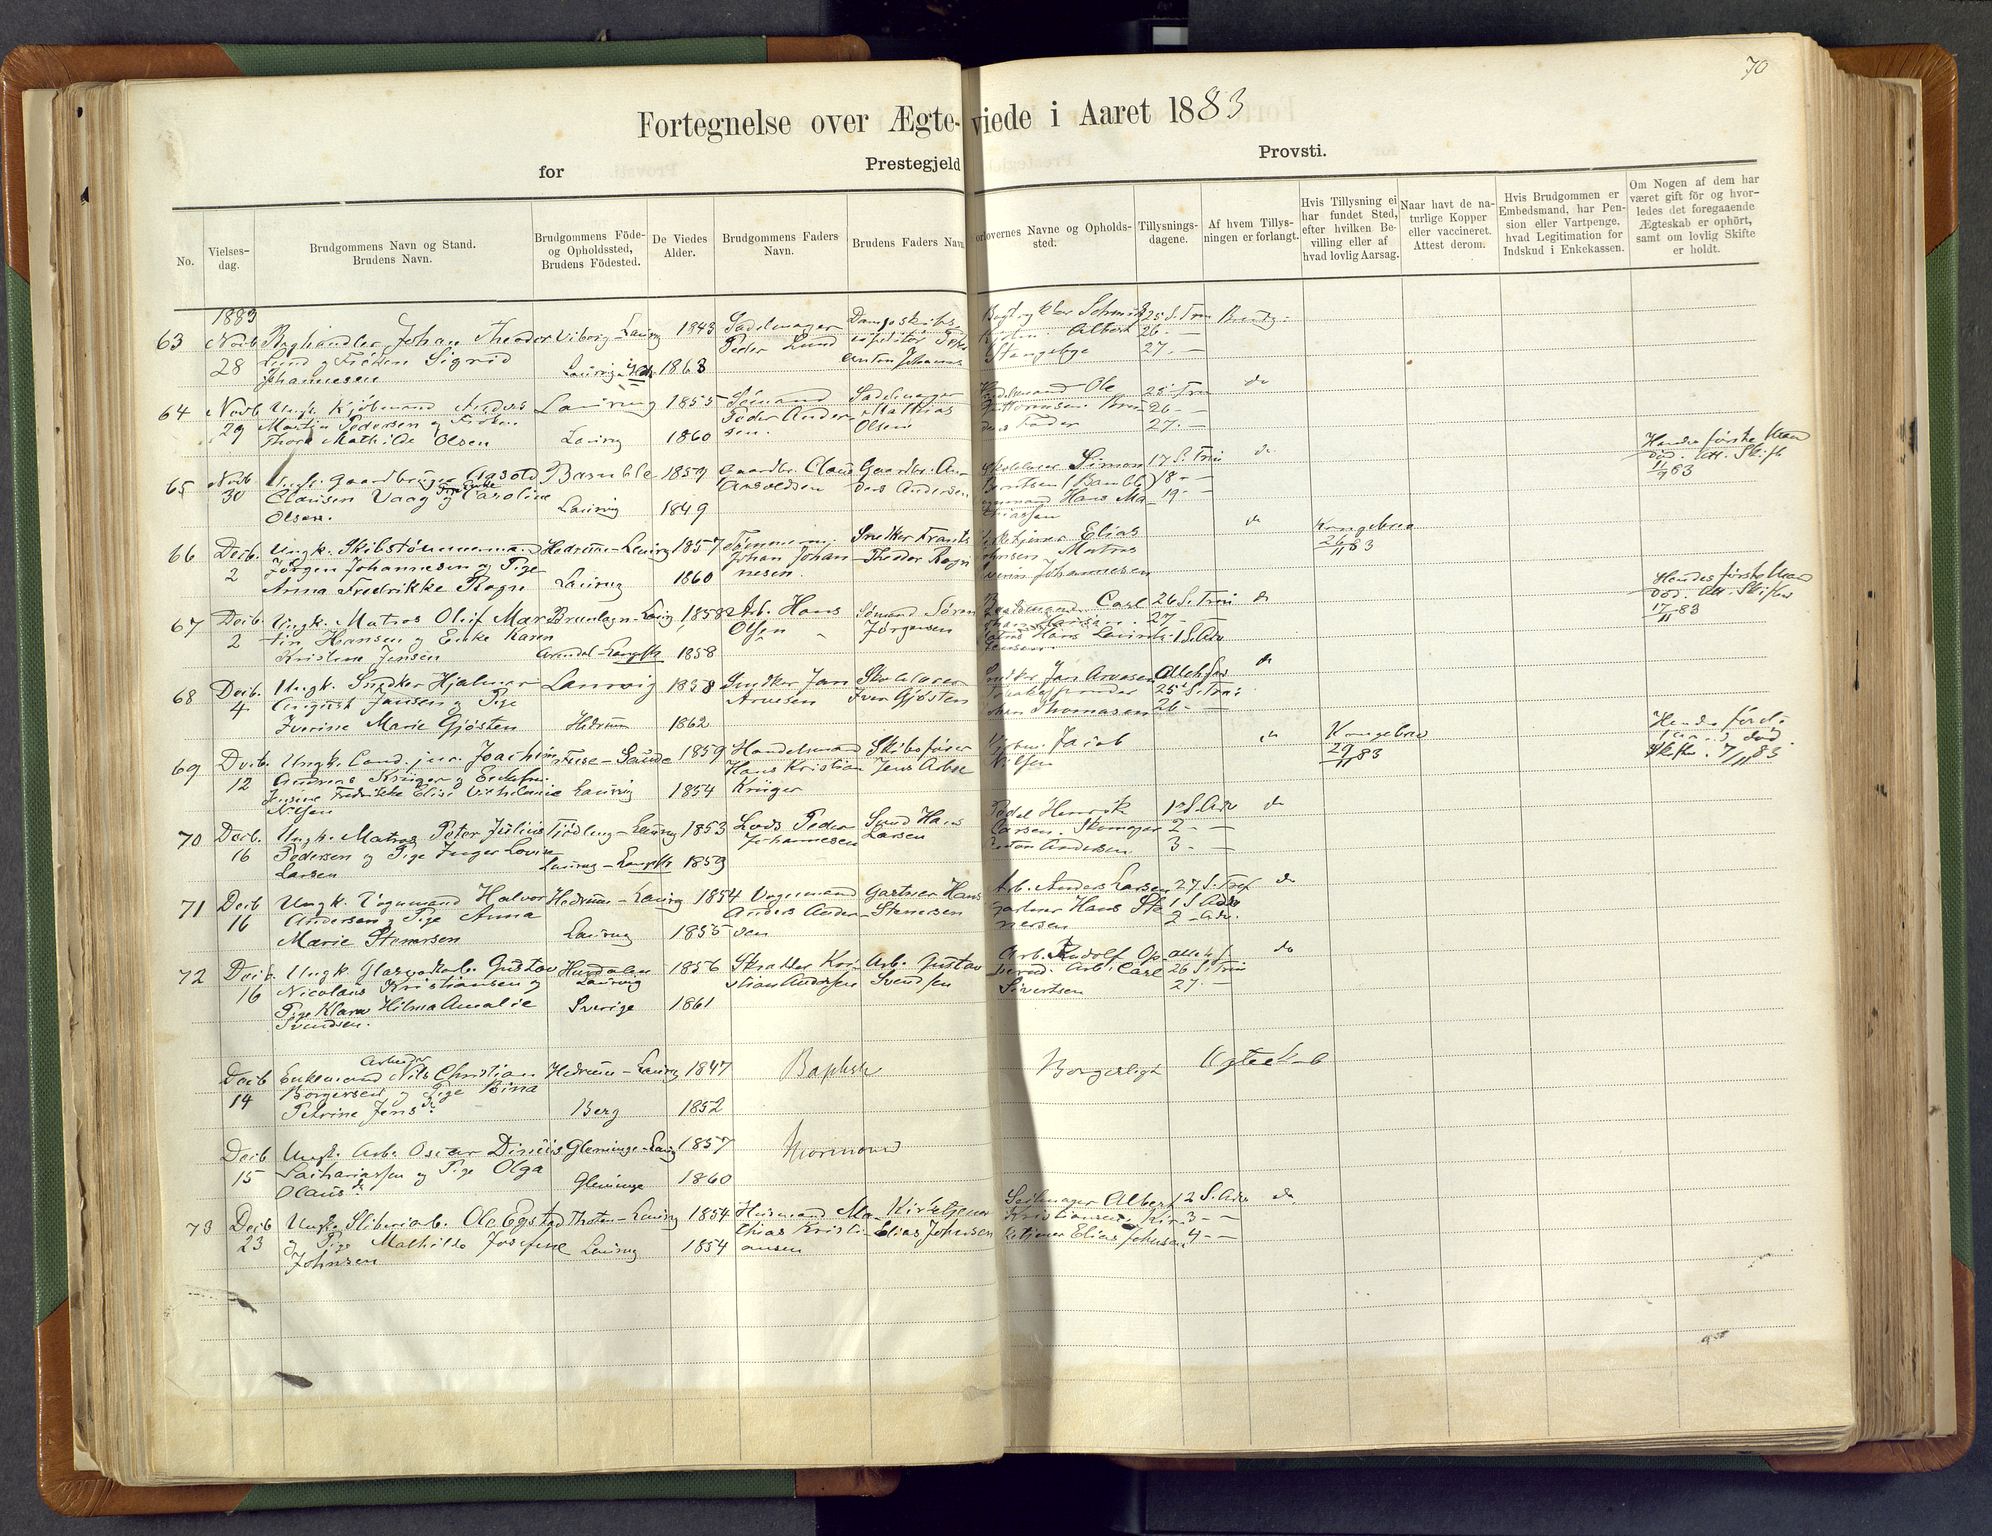 70
Fortegnelse over Ægteviede i Aaret 1883
for Prestegjeld Provsti.
No.
Vielsesdag.
Brudgommens Navn og Stand.
Brudens Navn.
Brudgommens Födeog Opholdssted,
Brudens Födested.
De Viedes
Alder.
Brudgommens Faders
Navn.
Brudens Faders Navn
orlovernes Navne og Opholdssted.
Tillysningsdagene.
Af hvem Tillysningen er forlangt.
Hvis Tillysning ei
har fundet Sted,
efter hvilken Bevilling eller af
hvad lovlig Aarsag.
Naar havt de naturlige Kopper
eller vaccineret.
Attest derom.
Hvis Brudgommen er
Embedsmand, har Pension eller Vartpenge,
hvad Legitimation for
Indskud i Enkekassen.
Om Nogen af dem har
været gift för og hvorledes det foregaaende
Ægteskab er ophört,
samt om lovlig Skifte
er holdt.
1883
63 Novb 28
Johan Theodor
Lund og Fröken Sigrid
Johannesen
Viborg - Laurvig
1843
1863
Sadelmager
Peder Lund
Anton Johannes
Albert
25 S. Trin
26 -
27 -
64 Novb 29
Ungk. Kjöbmand Anders
Martin Pedersen og Fröken
Thora Mathilde Olsen
Laurvig
Laurvig
1855
1860
Sömand
Peder Andersen.
Sadelmager
Mathias
Olsen
Ole
25 Trin
26 -
27 -
do
65 Novb 30
Ungk. Gaardbruger Arsold
Clausen Vaag og Caroline
Olsen.
Bamble
Laurvig
1859
1849
Gaardbr. Claus
Arsoldsen
Gaardbr. Anders Andersen
Simon
Hans Mathiassen
17 S. Trin
18 -
19 -
do
Hendes förste Mand
död. Att. Skift
66 Decb. 2
Ungk. Skibstömmermand
Jörgen Johannesen og Pige
Anna Fredrikke Rogn
Hedrum - Laurvig
Laurvig
1857
1860
Tömmerm.
Johan Johannesen.
Snedker Frants
Theodor Rogn
Elias
Johnsen, Matros
Johannesen
do
Kongebrev
26/11 83
67 Decb. 2
Ungk. Matros Oluf Martin Hansen og Enke Karen
Kristine Jensen
Brunlagn - Laurvig
Arendal - Langestr
1858
1858
Arb. Hans
Olsen
Sömand Sören
Jörgensen
Carl
Hans
26 S. Trin
27 -
1 S. Adv
do
Hendes förste Mand
död. Att. Skifte
17/11 83
68 Decb. 4
Ungk. Snedker Hjalmar
August Jansen og Pige
Iverine Marie Gjösten
Laurvig
Hedrum
1858
1862
Snedker Jan
Arnesen
Skolelærer
Iver Gjösten
Snedker Jan Arnesen
Thomasen
25 S. Trin
26 -
do
69 Decb. 12
Ungk. Cand. jur. Joachim
Andreas Krüger og Enkefru
Jensine Fredrikke Elise Vilhelmine
Nilsen
Laurvig
1859
1854
Handelsmand
Hans Kristian
Krüger
Skibsförer
Jens Arboe
Jacob
Nilsen
do
Kongebrev
29/11 83
död.
Skifte. 7/11 83
70 Decb. 16
Ungk. Matros Peter Julius
Pedersen og Pige Inger Lovise
Larsen
Tjödling - Laurvig
Laurvig - Langestr
1853
1859
Lods Peder
Johannesen
Smed Hans
Larsen
Henrik
Larsen. Skomager
Anton Andersen
1ste S. Adv
2 -
3 -
do
71 Decb 16
Ungk. Vognmand Halvor
Andersen og Pige Anna
Marie Stenersen
Hedrum - Laurvig
Laurvig
1854
1855
Vognmand
Anders Andersen
Gartner Hans
Stenersen
Arb. Anders Larsen
Gartner Hans Stenersen
27 S. Tref
1 S. Adv
2 - Adv.
do
72 Decb. 16
Ungk. Glasværksarb. Gustav
Nicolaus Kristiansen og
Pige Klara Hilma Amalie
Svendsen.
Hurdalen
Laurvig
Sverige
1856
1861
Skrædder Kristian Andersen
Arb. Gustav
Svendsen
Arb. Rudolf
Arb. Carl
Sivertsen
26 S. Trin
27 -
do
Decb 14
Arbeider
Enkemand Nils Christian
Borgersen og Pige Bina
Petrine Jensdr
Hedrum - Laurvig
Berg
1847
1852
Baptister
Borgerligt Ægteskab
Decb 15
Ungk. Arb. Oscar Dinius
Zachariassen og Pige Olga
Olausdr
Glemminge - Laurvig
Glemminge
1857
1860
Mormoner
73 Decb 23
Ungk. Sliberiarb. Ole Egstad
og Pige Mathilde Josefine
Johnsen
Thoten - Laurvig
Laurvig
1854
1854
Husmand Mathias Kristiansen
Kirketjener
Elias Johnsen
Seilmager Albert
Kristiansen, Kirketjener Elias Johnsen
2 S. Adv
3 -
4 -
do